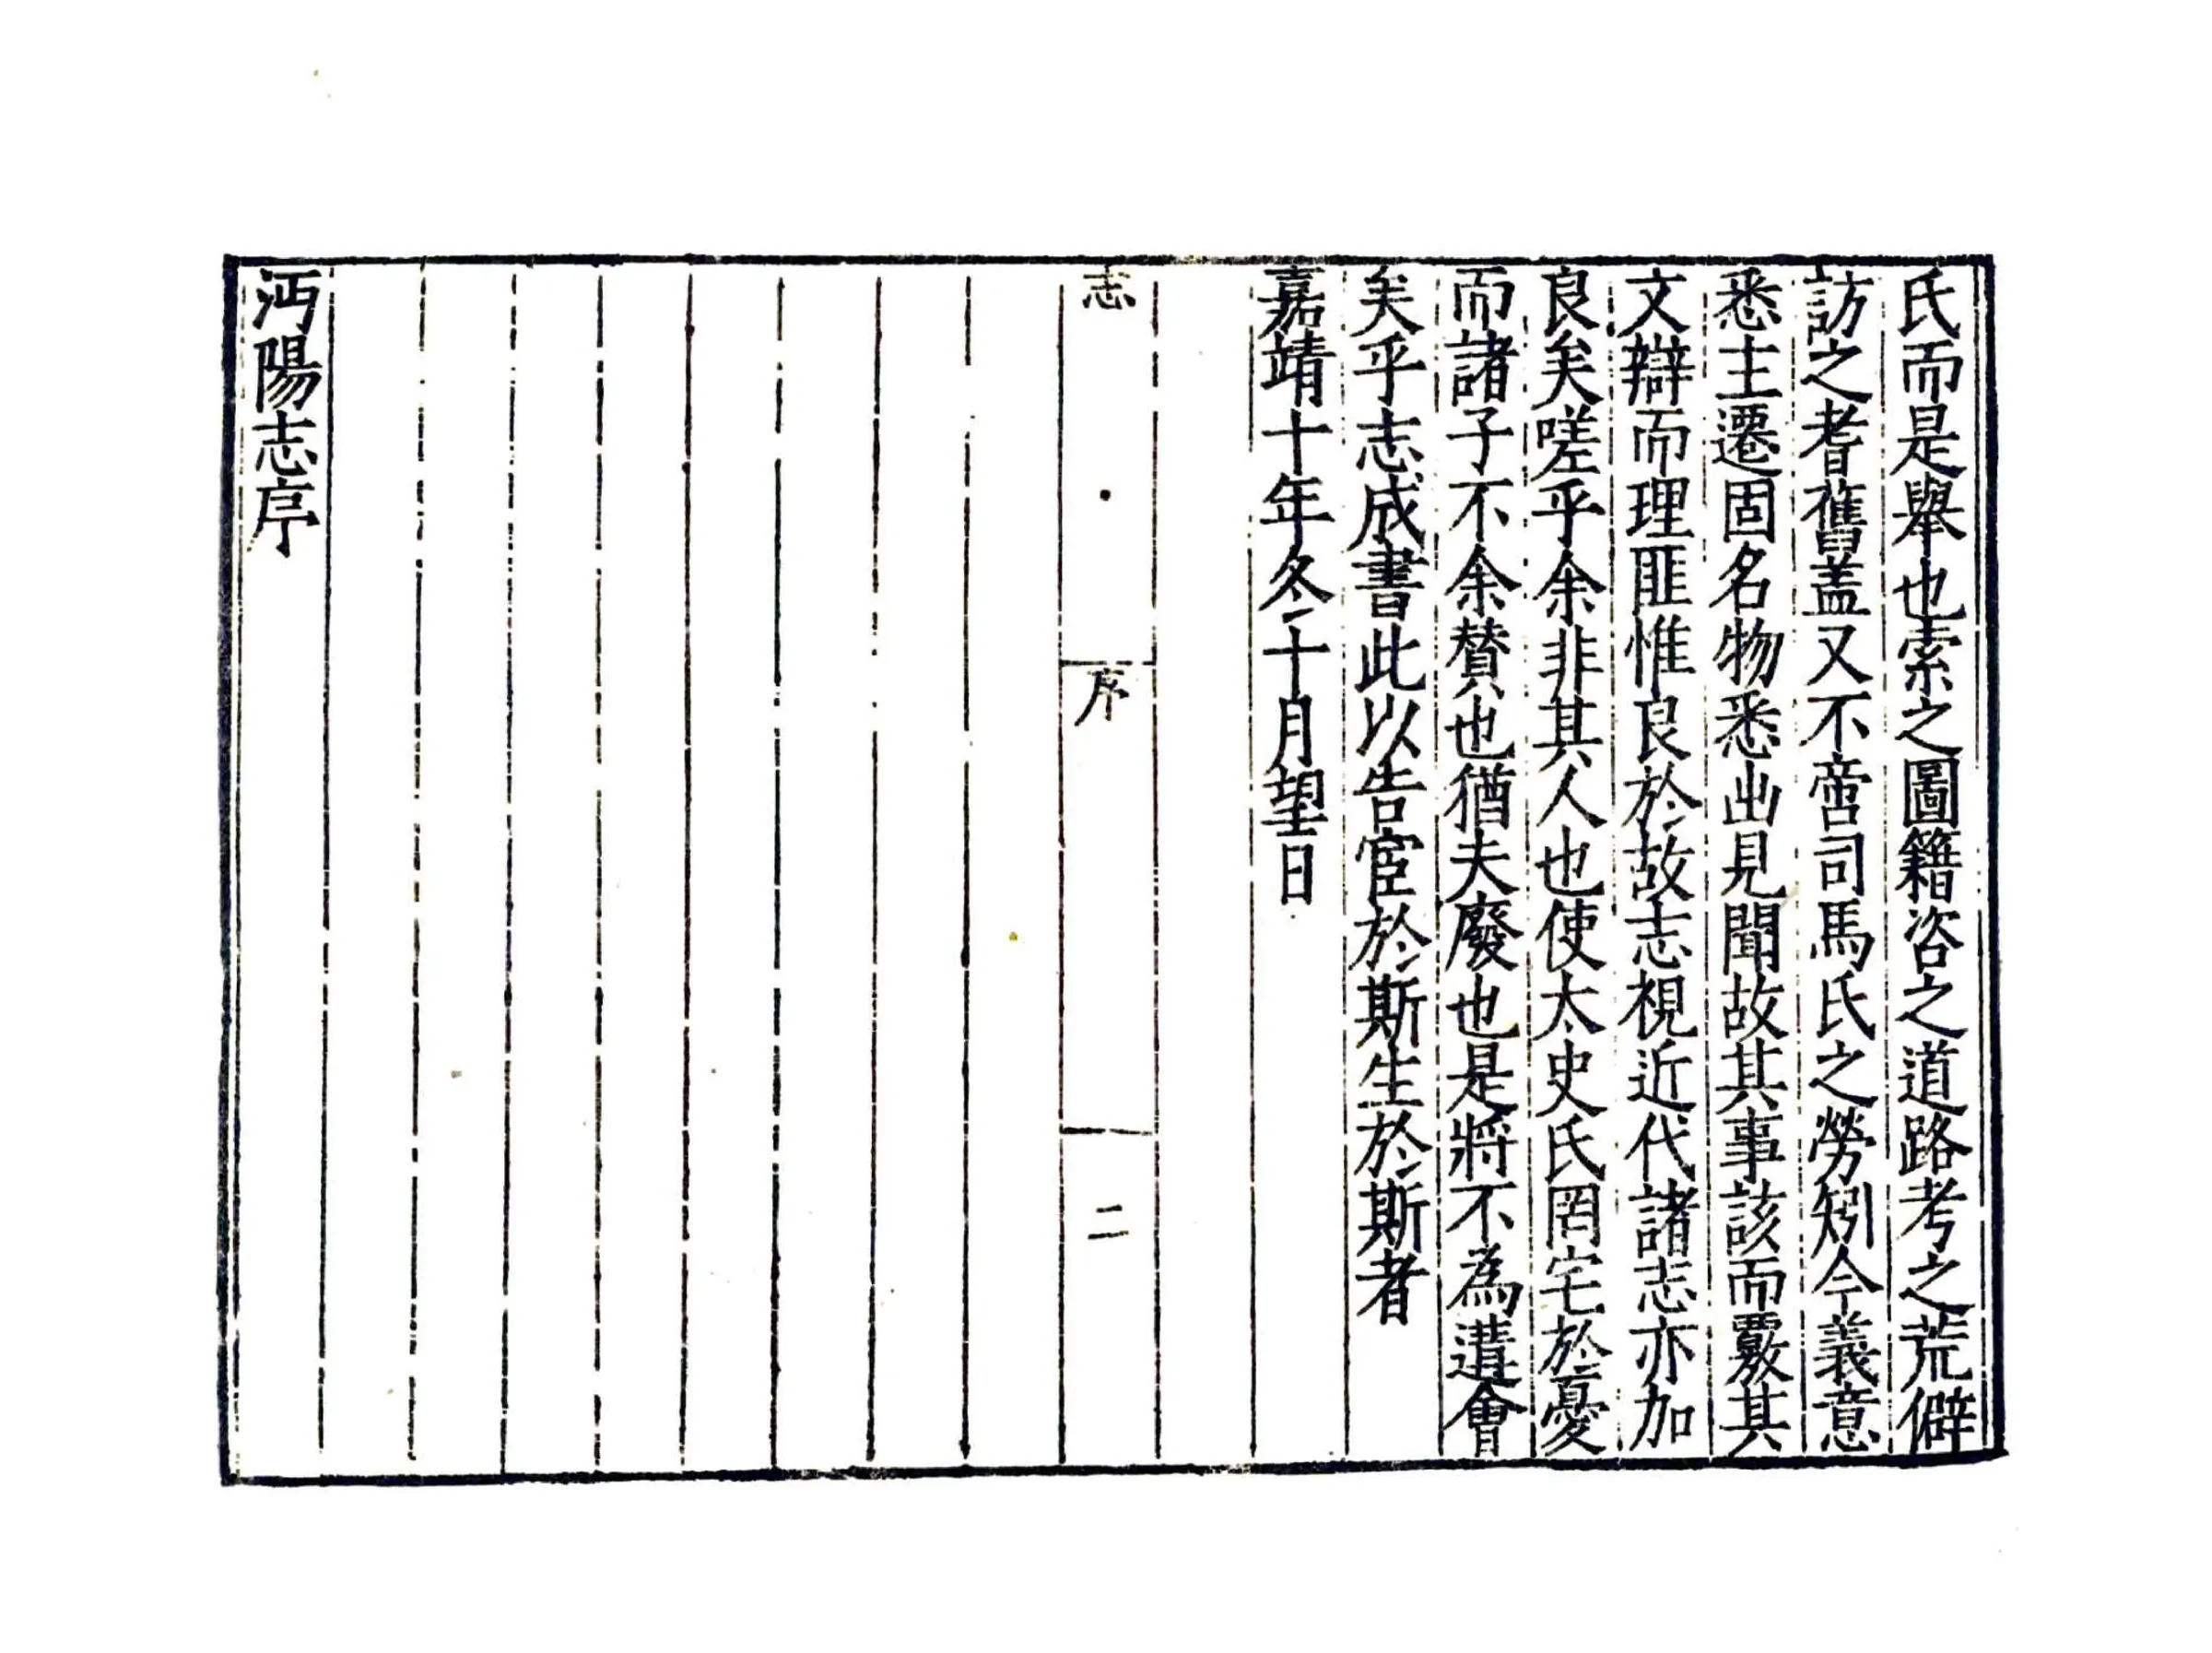 氏而是舉也索之圖籍咨之道路考之荒僻
訪之耆舊盖又不啻司馬氏之勞矧今義意
悉主遷固名物悉出見聞故其事該而覈其
文辯而理匪惟良於故志視近代諸志亦加
良矣嗟乎余非其人也使太史氏罔宅於憂
而諸子不余賛也猶夫廢也是將不為遘會
矣乎志成書此以告宦於斯生於斯者
嘉靖十年冬十月望日
志
序
二
沔陽志序